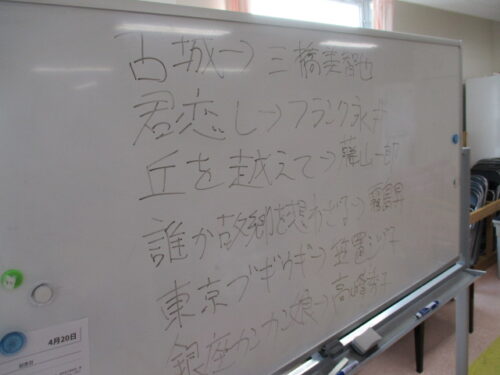 古城→三橋美智也
君恋し→フランク永井
丘を越えて→藤山一郎
誰か故郷を想わざる→霧島昇
東京ブギウギ→笠置シヅ子
銀座カンカン娘→高峰秀子
4月20日